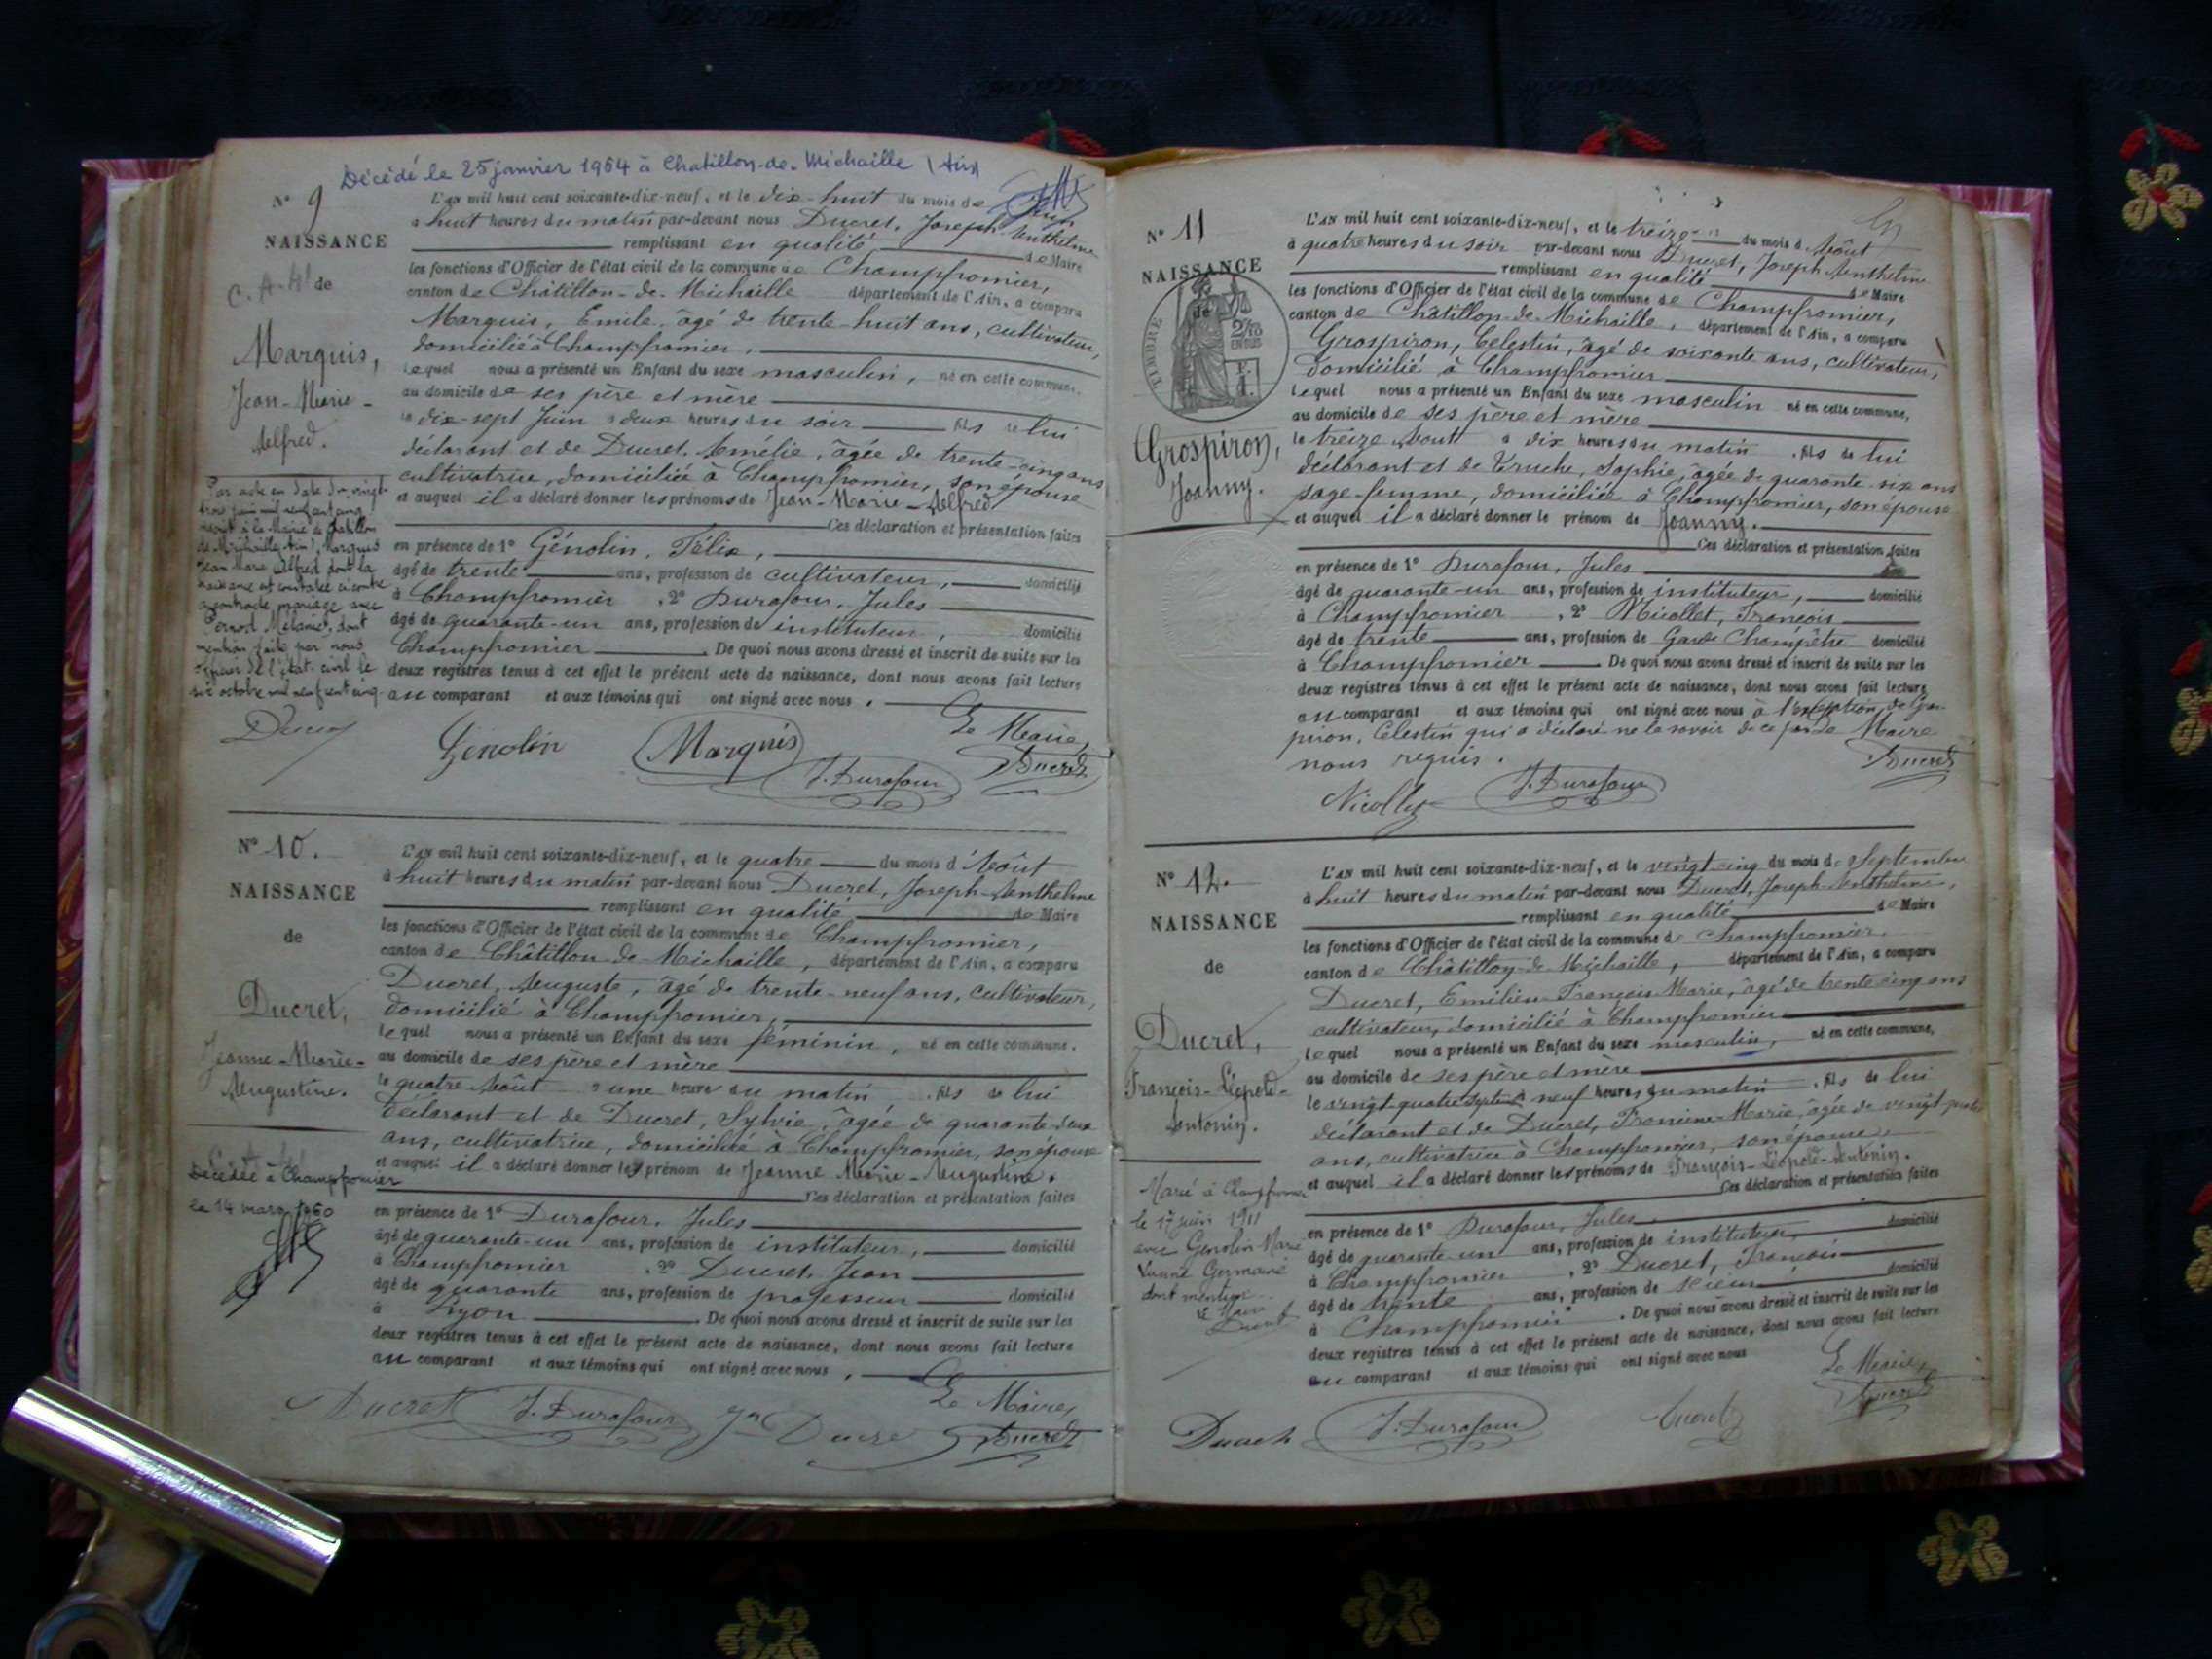 Décédé le 25 janvier 1964 à Chatillon-de-Michaille (Ain)
N° 9
NAISSANCE
C. A. H. de
Marquis,
Jean-Marie-
Alfred.
Par acte en date du vingt
trois juin mil neuf cent cinq
à la Mairie de Chatillon
de Michaille (Ain), Marquis
Jean Marie Alfred dont la
naissance est constatée ci-contre
a contracté mariage avec
Pernod Mélanie, dont
mention faite par nous
officier de l'état civil le
six octobre mil neuf cent cinq
Ducret
L'an mil huit cent soixante-dix-neuf, et le dix-huit du mois de Juin
à huit heures du matin par-devant nous Ducret, Joseph-Anthelme
remplissant en qualité de Maire
les fonctions d'Officier de l'état civil de la commune de Champfromier,
canton de Châtillon-de-Michaille département de l'Ain, a comparu
Marquis, Emile, âgé de trente-huit ans, cultivateur,
domicilié à Champfromier,
lequel nous a présenté un Enfant du sexe masculin, né en cette commune,
au domicile de ses père et mère
le dix-sept Juin à deux heures du soir fils de lui
déclarant et de Ducret, Amélie, âgée de trente-cinq ans
cultivatrice, domiciliée à Champfromier, son épouse
et auquel il a déclaré donner les prénoms de Jean-Marie-Alfred
Ces déclaration et présentation faites
en présence de 1° Génolin, Félix,
âgé de trente ans, profession de cultivateur, domicilié
à Champfromier, 2° Durafour, Jules
âgé de quarante-un ans, profession de instituteur, domicilié
Champfromier. De quoi nous avons dressé et inscrit de suite sur les
deux registres tenus à cet effet le présent acte de naissance, dont nous avons fait lecture
au comparant et aux témoins qui ont signé avec nous.
Le Maire,
Génolin Marquis J. Durafour Ducret
N° 10.
NAISSANCE
de
Ducret,
Jeanne-Marie-
Augustine.
Décédée à Champfromier
le 14 mars 1960
L'an mil huit cent soixante-dix-neuf, et le quatre du mois d'Août
à huit heures du matin par-devant nous Ducret, Joseph-Anthelme
remplissant en qualité de Maire
les fonctions d'Officier de l'état civil de la commune de Champfromier,
canton de Châtillon de Michaille, département de l'Ain, a comparu
Ducret, Auguste, âgé de trente-neuf ans, cultivateur,
domicilié à Champfromier,
lequel nous a présenté un Enfant du sexe féminin, né en cette commune,
au domicile de ses père et mère
le quatre Août à une heure du matin, fils de lui
déclarant et de Ducret, Sylvie, âgée de quarante-deux
ans, cultivatrice, domiciliée à Champfromier, son épouse
et auquel il a déclaré donner les prénom de Jeanne Marie-Augustine.
Ces déclaration et présentation faites
en présence de 1° Durafour, Jules
âgé de quarante-un ans, profession de instituteur, domicilié
à Champfromier, 2° Ducret, Jean
âgé de quarante ans, profession de professeur domicilié
à Lyon. De quoi nous avons dressé et inscrit de suite sur les
deux registres tenus à cet effet le présent acte de naissance, dont nous avons fait lecture
au comparant et aux témoins qui ont signé avec nous,
Le Maire,
Ducret J. Durafour Jn Ducret Ducret
N° 11
NAISSANCE
de
TIMBRE
Grospiron,
Joanny.
L'an mil huit cent soixante-dix-neuf, et le treize du mois d'Août
à quatre heures du soir par-devant nous Ducret, Joseph Anthelme
remplissant en qualité de Maire
les fonctions d'Officier de l'état civil de la commune de Champfromier,
canton de Châtillon-de-Michaille, département de l'Ain, a comparu
Grospiron, Celestin, âgé de soixante ans, cultivateur,
domicilié à Champfromier
lequel nous a présenté un Enfant du sexe masculin né en cette commune,
au domicile de ses père et mère
le treize Août à dix heures du matin, fils de lui
déclarant et de Truche, Sophie, âgée de quarante-six ans
sage-femme, domiciliée à Champfromier, son épouse
et auquel il a déclaré donner le prénom de Joanny.
Ces déclaration et présentation faites
en présence de 1° Durafour, Jules
âgé de quarante-un ans, profession de instituteur, domicilié
à Champfromier, 2° Nicollet, François
âgé de trente ans, profession de Garde Champêtre domicilié
à Champfromier. De quoi nous avons dressé et inscrit de suite sur les
deux registres tenus à cet effet le présent acte de naissance, dont nous avons fait lecture
au comparant et aux témoins qui ont signé avec nous à l'exception de Gros-
piron, Celestin qui a déclaré ne le savoir de ce par Le Maire
nous requis. Ducret
Nicollet J. Durafour
N° 12.
NAISSANCE
de
Ducret,
François-Léopold-
Antonin.
Marié à Champfromier
le 17 juin 1911
avec Genolin Marie
Germaine
dont mention
Le Maire
Ducret
L'an mil huit cent soixante-dix-neuf, et le vingt-cinq du mois de Septembre
à huit heures du matin par-devant nous Ducret, Joseph-Anthelme,
remplissant en qualité de Maire
les fonctions d'Officier de l'état civil de la commune de Champfromier,
canton de Châtillon-de-Michaille, département de l'Ain, a comparu
Ducret, Emilien-François-Marie, âgé de trente cinq ans
cultivateur, domicilié à Champfromier
lequel nous a présenté un Enfant du sexe masculin, né en cette commune,
au domicile de ses père et mère
le vingt-quatre Septemb à neuf heures du matin, fils de lui
déclarant et de Ducret, Francine-Marie, âgée de vingt-quatre
ans, cultivatrice à Champfromier, son épouse,
et auquel il a déclaré donner les prénoms de François-Léopold-Antonin.
Ces déclaration et présentation faites
en présence de 1° Durafour, Jules
âgé de quarante un ans, profession de instituteur, domicilié
à Champfromier, 2° Ducret, François
âgé de trente ans, profession de scieur domicilié
à Champfromier. De quoi nous avons dressé et inscrit de suite sur les
deux registres tenus à cet effet le présent acte de naissance, dont nous avons fait lecture
au comparant et aux témoins qui ont signé avec nous
Le Maire,
Ducret J. Durafour Ducret Ducret